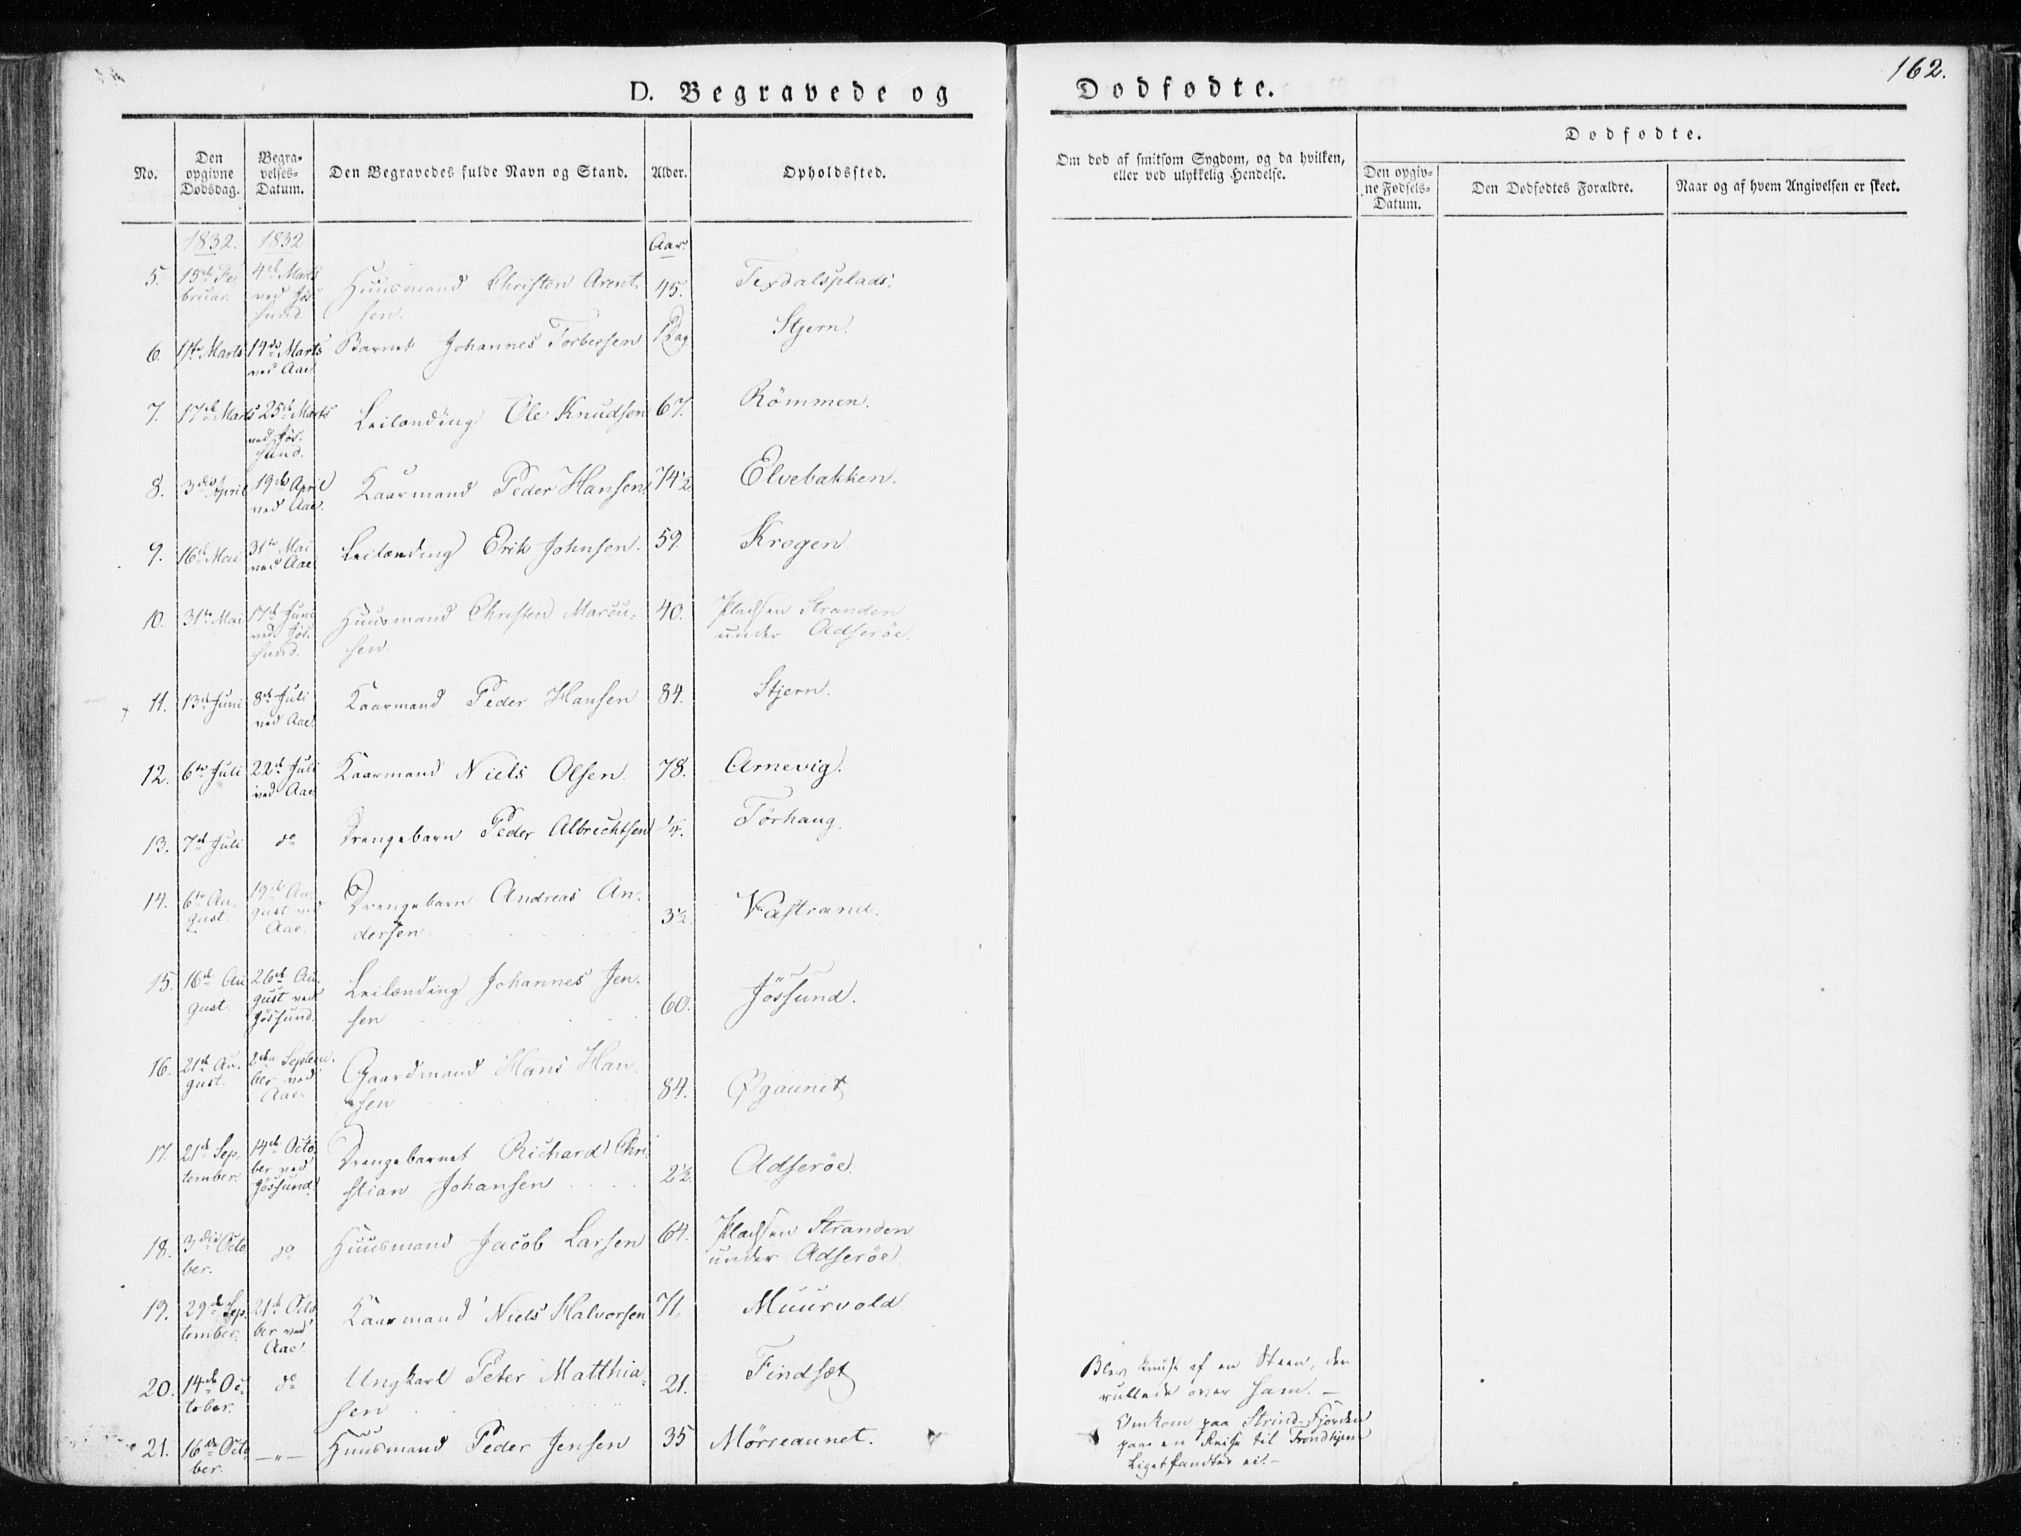 162.
D. Begravede og Dødfødte.
No.
Den opgivne Dødsdag.
Begravelses-Datum.
Den Begravedes fulde Navn og Stand.
Alder.
Opholdssted.
Om død af smitsom Sygdom, og da hvilken, eller ved ulykkelig Hendelse.
Dødfødte.
Den opgivne Fødsels-Datum.
Den Dødfødtes Forældre.
Naar og af hvem Angivelsen er skeet.
1832. 1832 Aar
5. 15de Februar. 4de Marts ved Jössund. Huusmand Christen Arentsen. 45. Texdalsplads.
6. 11te Marts 14de Marts ved Aae. Barnet Johannes Torbersen 1 Dag Stjern.
7. 17de Marts 25de Marts ved Jössund. Leilænding Ole Knudsen 67. Römmen.
8. 3die April 19de April ved Aae. Kaarmand Peder Hansen 74½ Elvebakken.
9. 16de Mai 31te Mai ved Aae. Leilænding Erik Johnsen. 59 Krogen
10. 31te Mai 17de Juni ved Jössund. Huusmand Christen Marcussen. 40. Pladsen Stranden under Adseröe.
11. 13de Juni 8de Juli ved Aae. Kaarmand Peder Hansen 84. Stjern.
12. 6te Juli 22de Juli ved Aae. Kaarmand Niels Olsen. 78. Arnevig.
13. 7de Juli do Drengebarn Peder Albrechtsen ¼. Törhaug.
14. 6te August. 19de August ved Aae. Drengebarn Andreas Andersen. 3½ Vastrand.
15. 16de August. 26de August ved Jössund. Leilænding Johannes Jensen 60. Jössund.
16. 21de August. 2den September ved Aae. Gaardmand Hans Hansen 84. Øgaunet
17. 21de September. 14de October ved Jössund. Drengebarnet Richard Christian Johansen 2½ Adseröe.
18. 3die October. do Huusmand Jacob Larsen 64. Pladsen Stranden under Adseröe.
19. 29de September. 21de October ved Aae. Kaarmand Niels Halvorsen 71. Muurvold
20. 14de October. do Ungkarl Peter Matthiasen 21. Findsæt Blev knust af en Steen, der rullede over ham. —
21. 16de October. —"— Huusmand Peder Jensen 35 Mörreaunet. Omkom paa Strind-Fjorden paa en Reise til Trondhjem Liget fandtes ei. —